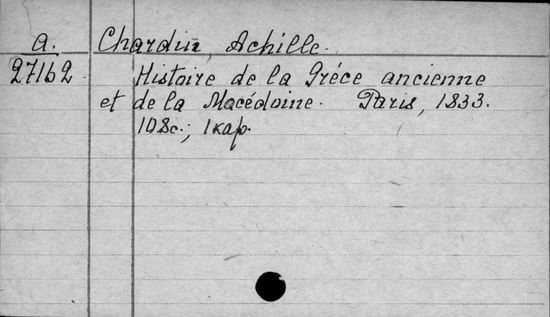 A. Chardin, Achille.
27162 Histoire de la Gréce ancienne
et de la Macédoine. Paris, 1833.
108с.; 1 кар.